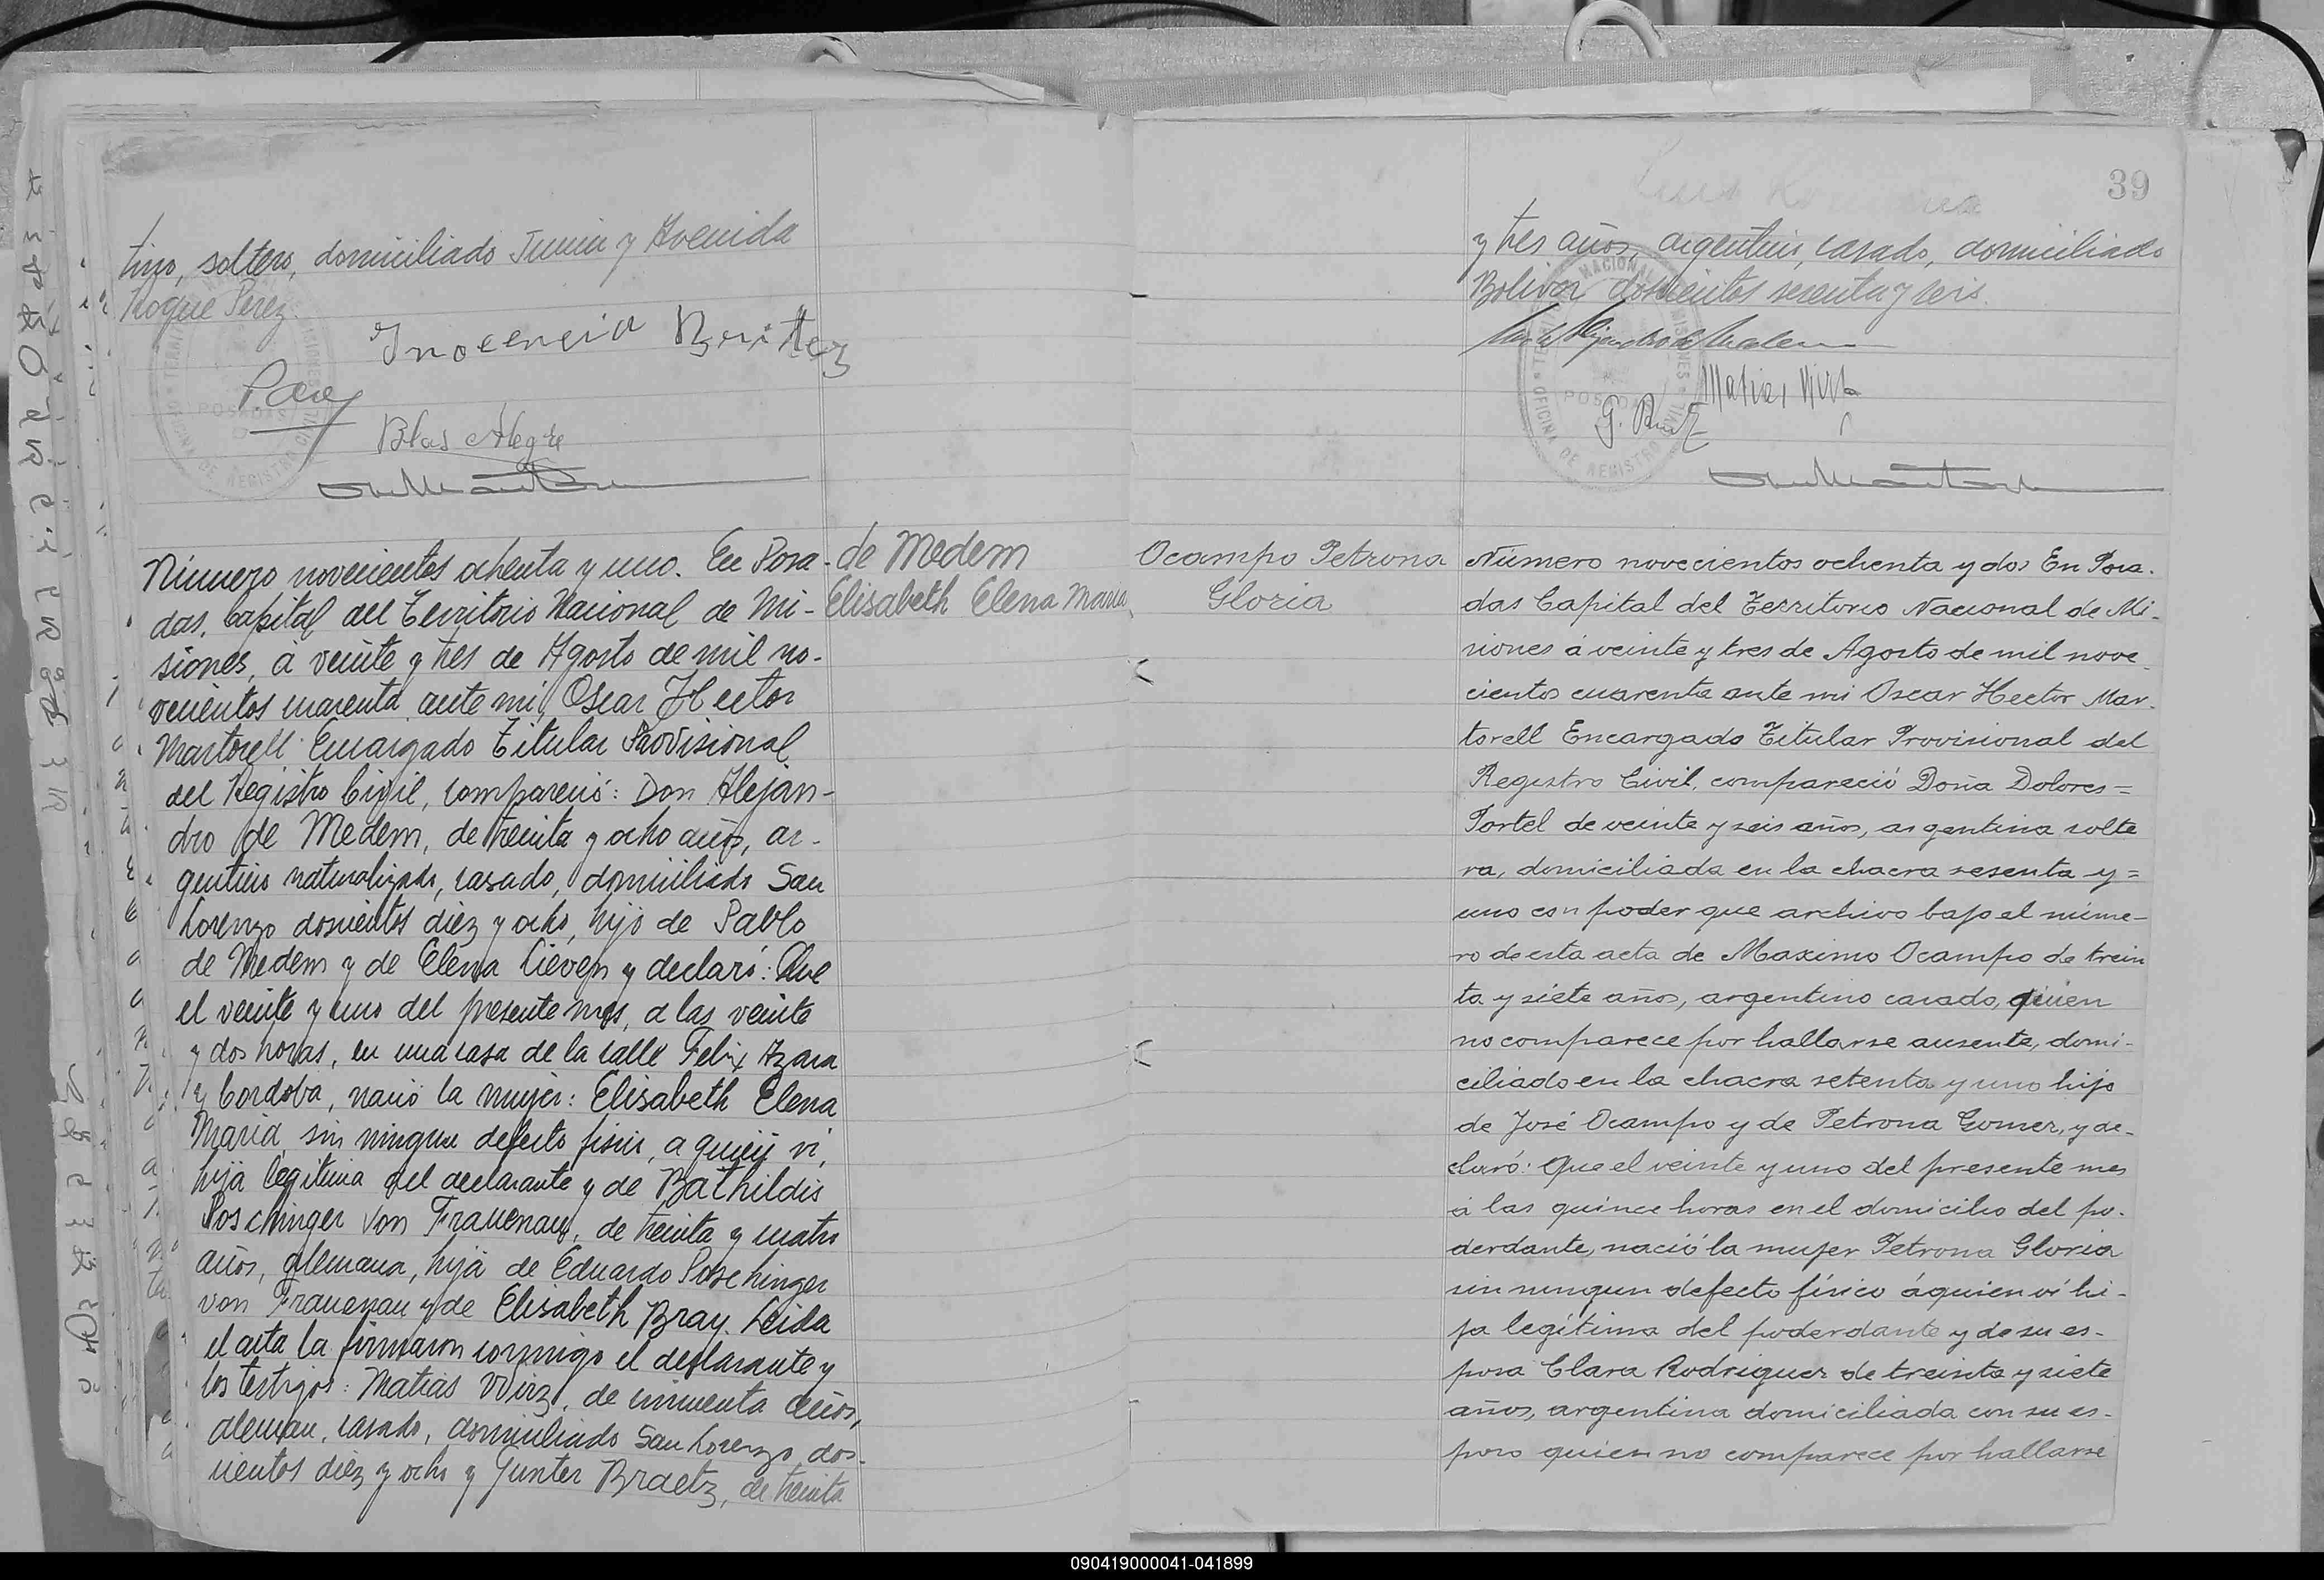 tino, soltero, domiciliado Junin y Avenida
Roque Perez.
Inocencia Benitez
Blas Alegre
POSADAS
OFICINA DE REGISTRO CIVIL
Número novecientos ochenta y uno. En Posa-
das, Capital del Territorio Nacional de Mi-
siones, á veinte y tres de Agosto de mil no-
vecientos cuarenta ante mi, Oscar Hector
Martorell Encargado Titular Provisional
del Registro Civil, compareció: Don Alejan-
dro de Medem, de treinta y ocho años, ar-
gentino naturalizado, casado, domiciliado San
Lorenzo doscientos diez y ocho, hijo de Pablo
de Medem y de Elena Lieven y declaró: Que
el veinte y uno del presente mes, a las veinte
y dos horas, en una casa de la calle Felix Azara
y Cordoba, nació la mujer: Elisabeth Elena
Maria sin ningun defecto fisico, a quien vi,
hija legitima del declarante y de Bathildis
Poschinger von Frauenau, de treinta y cuatro
años, alemana, hija de Eduardo Poschinger
von Frauenau y de Elisabeth Bray. Leida
el acta la firmaron conmigo el declarante y
los testigos: Matias Wirz, de cincuenta años,
aleman, casado, domiciliado San Lorenzo dos-
cientos diez y ocho y Gunter Braetz, de treinta
de Medem
Elisabeth Elena Maria
39
y tres años, argentino, casado, domiciliado
Bolivar doscientos sesenta y seis.
MISIONES
POSADAS
OFICINA DE REGISTRO CIVIL
Ocampo Petrona
Gloria
Número novecientos ochenta y dos En Posa-
das Capital del Territorio Nacional de Mi-
siones á veinte y tres de Agosto de mil nove-
cientos cuarenta ante mi Oscar Hector Mar-
torell Encargado Titular Provisional del
Registro Civil, compareció Doña Dolores=
Portel de veinte y seis años, argentina solte
ra, domiciliada en la chacra sesenta y=
uno con poder que archivo bajo el núme-
ro de esta acta de Maximo Ocampo de trein
ta y siete años, argentino casado, quien
no comparece por hallarse ausente, domi-
ciliado en la chacra setenta y uno hijo
de José Ocampo y de Petrona Gomez, y de-
claró: Que el veinte y uno del presente mes
á las quince horas en el domicilio del po-
derdante, nació la mujer Petrona Gloria
sin ningun defecto físico á quien ví hi-
ja legítima del poderdante y de su es-
posa Clara Rodriguez de treinta y siete
años, argentina domiciliada con su es-
poso quien no comparece por hallarse
090419000041-041899